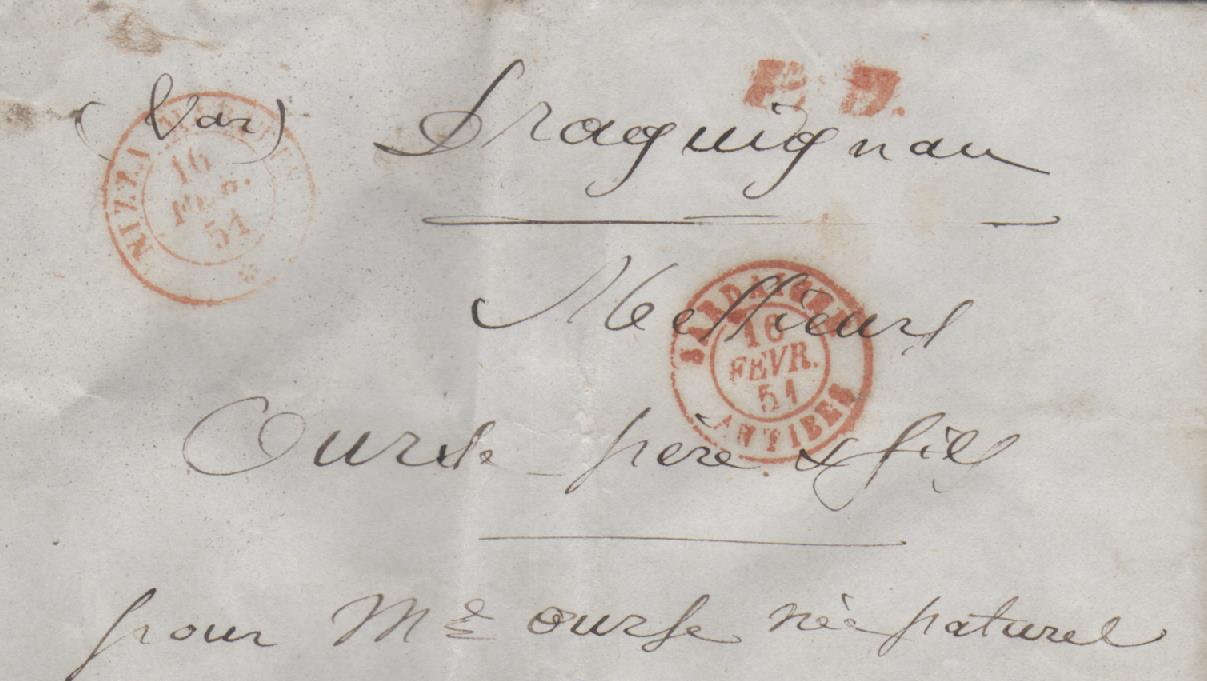 P. D.
(Var) Draguignan
NIZZA
16
FEB.
51
Messieurs
SARDAIGNE
16
FEVR.
51
ANTIBES
Ourse père & fils
pour Me ourse née paturel